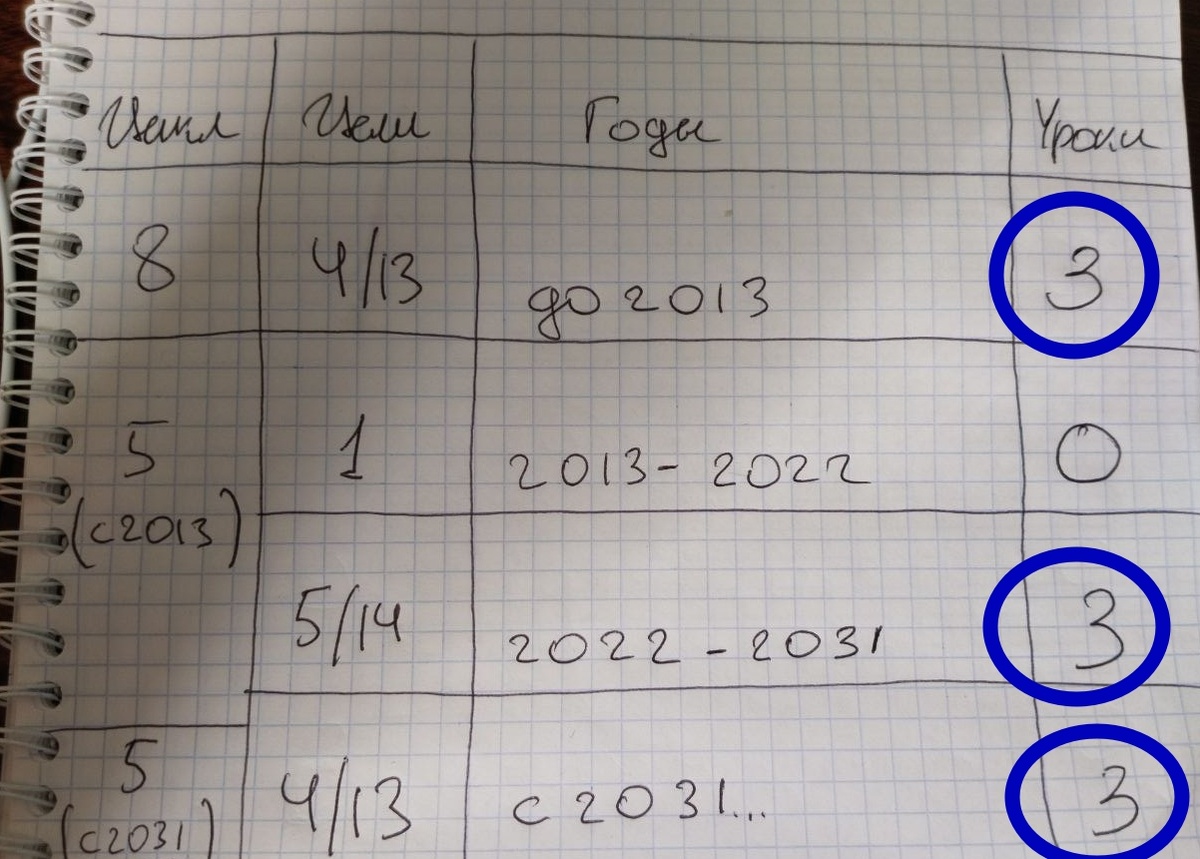 Цикл Цели Годы Уроки
8 4/13 до 2013 3
5 1 2013- 2022 0
(с2013)
5/14 2022 - 2031 3
5 4/13 с 2031... 3
(с2031)